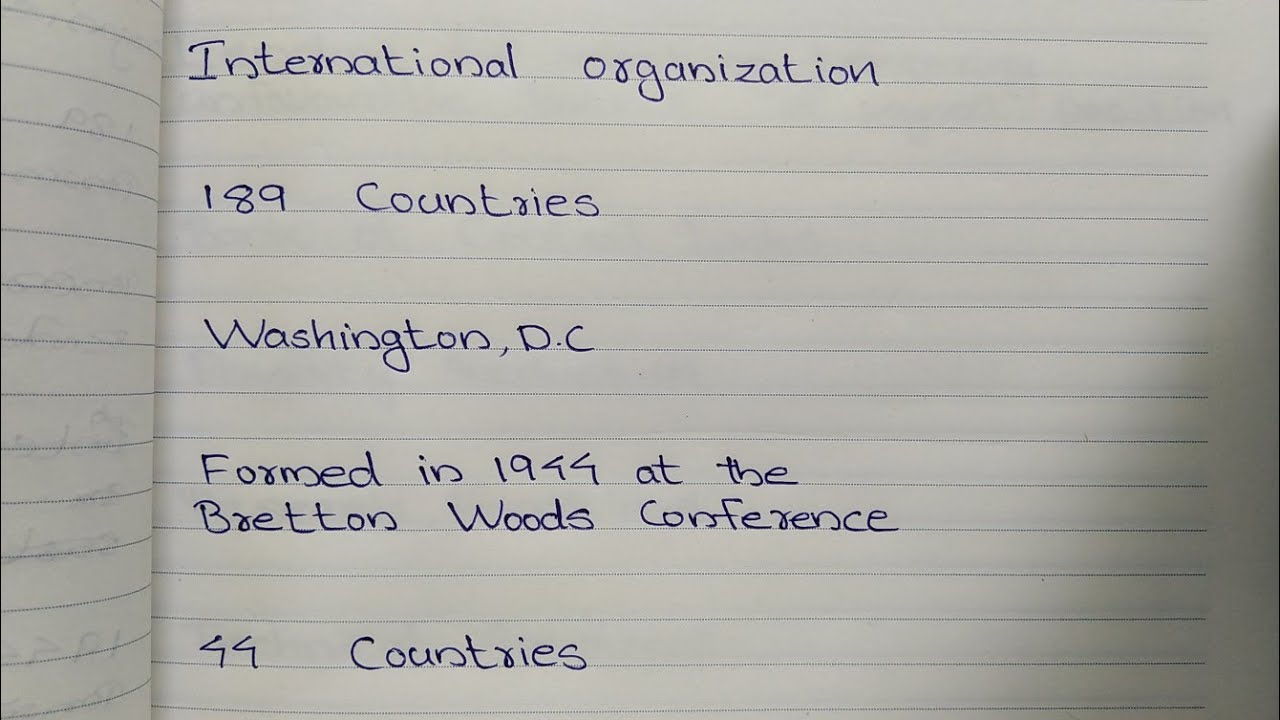 International organization
189 Countries
Washington, D.C
Formed in 1944 at the
Bretton Woods Conference
44 Countries